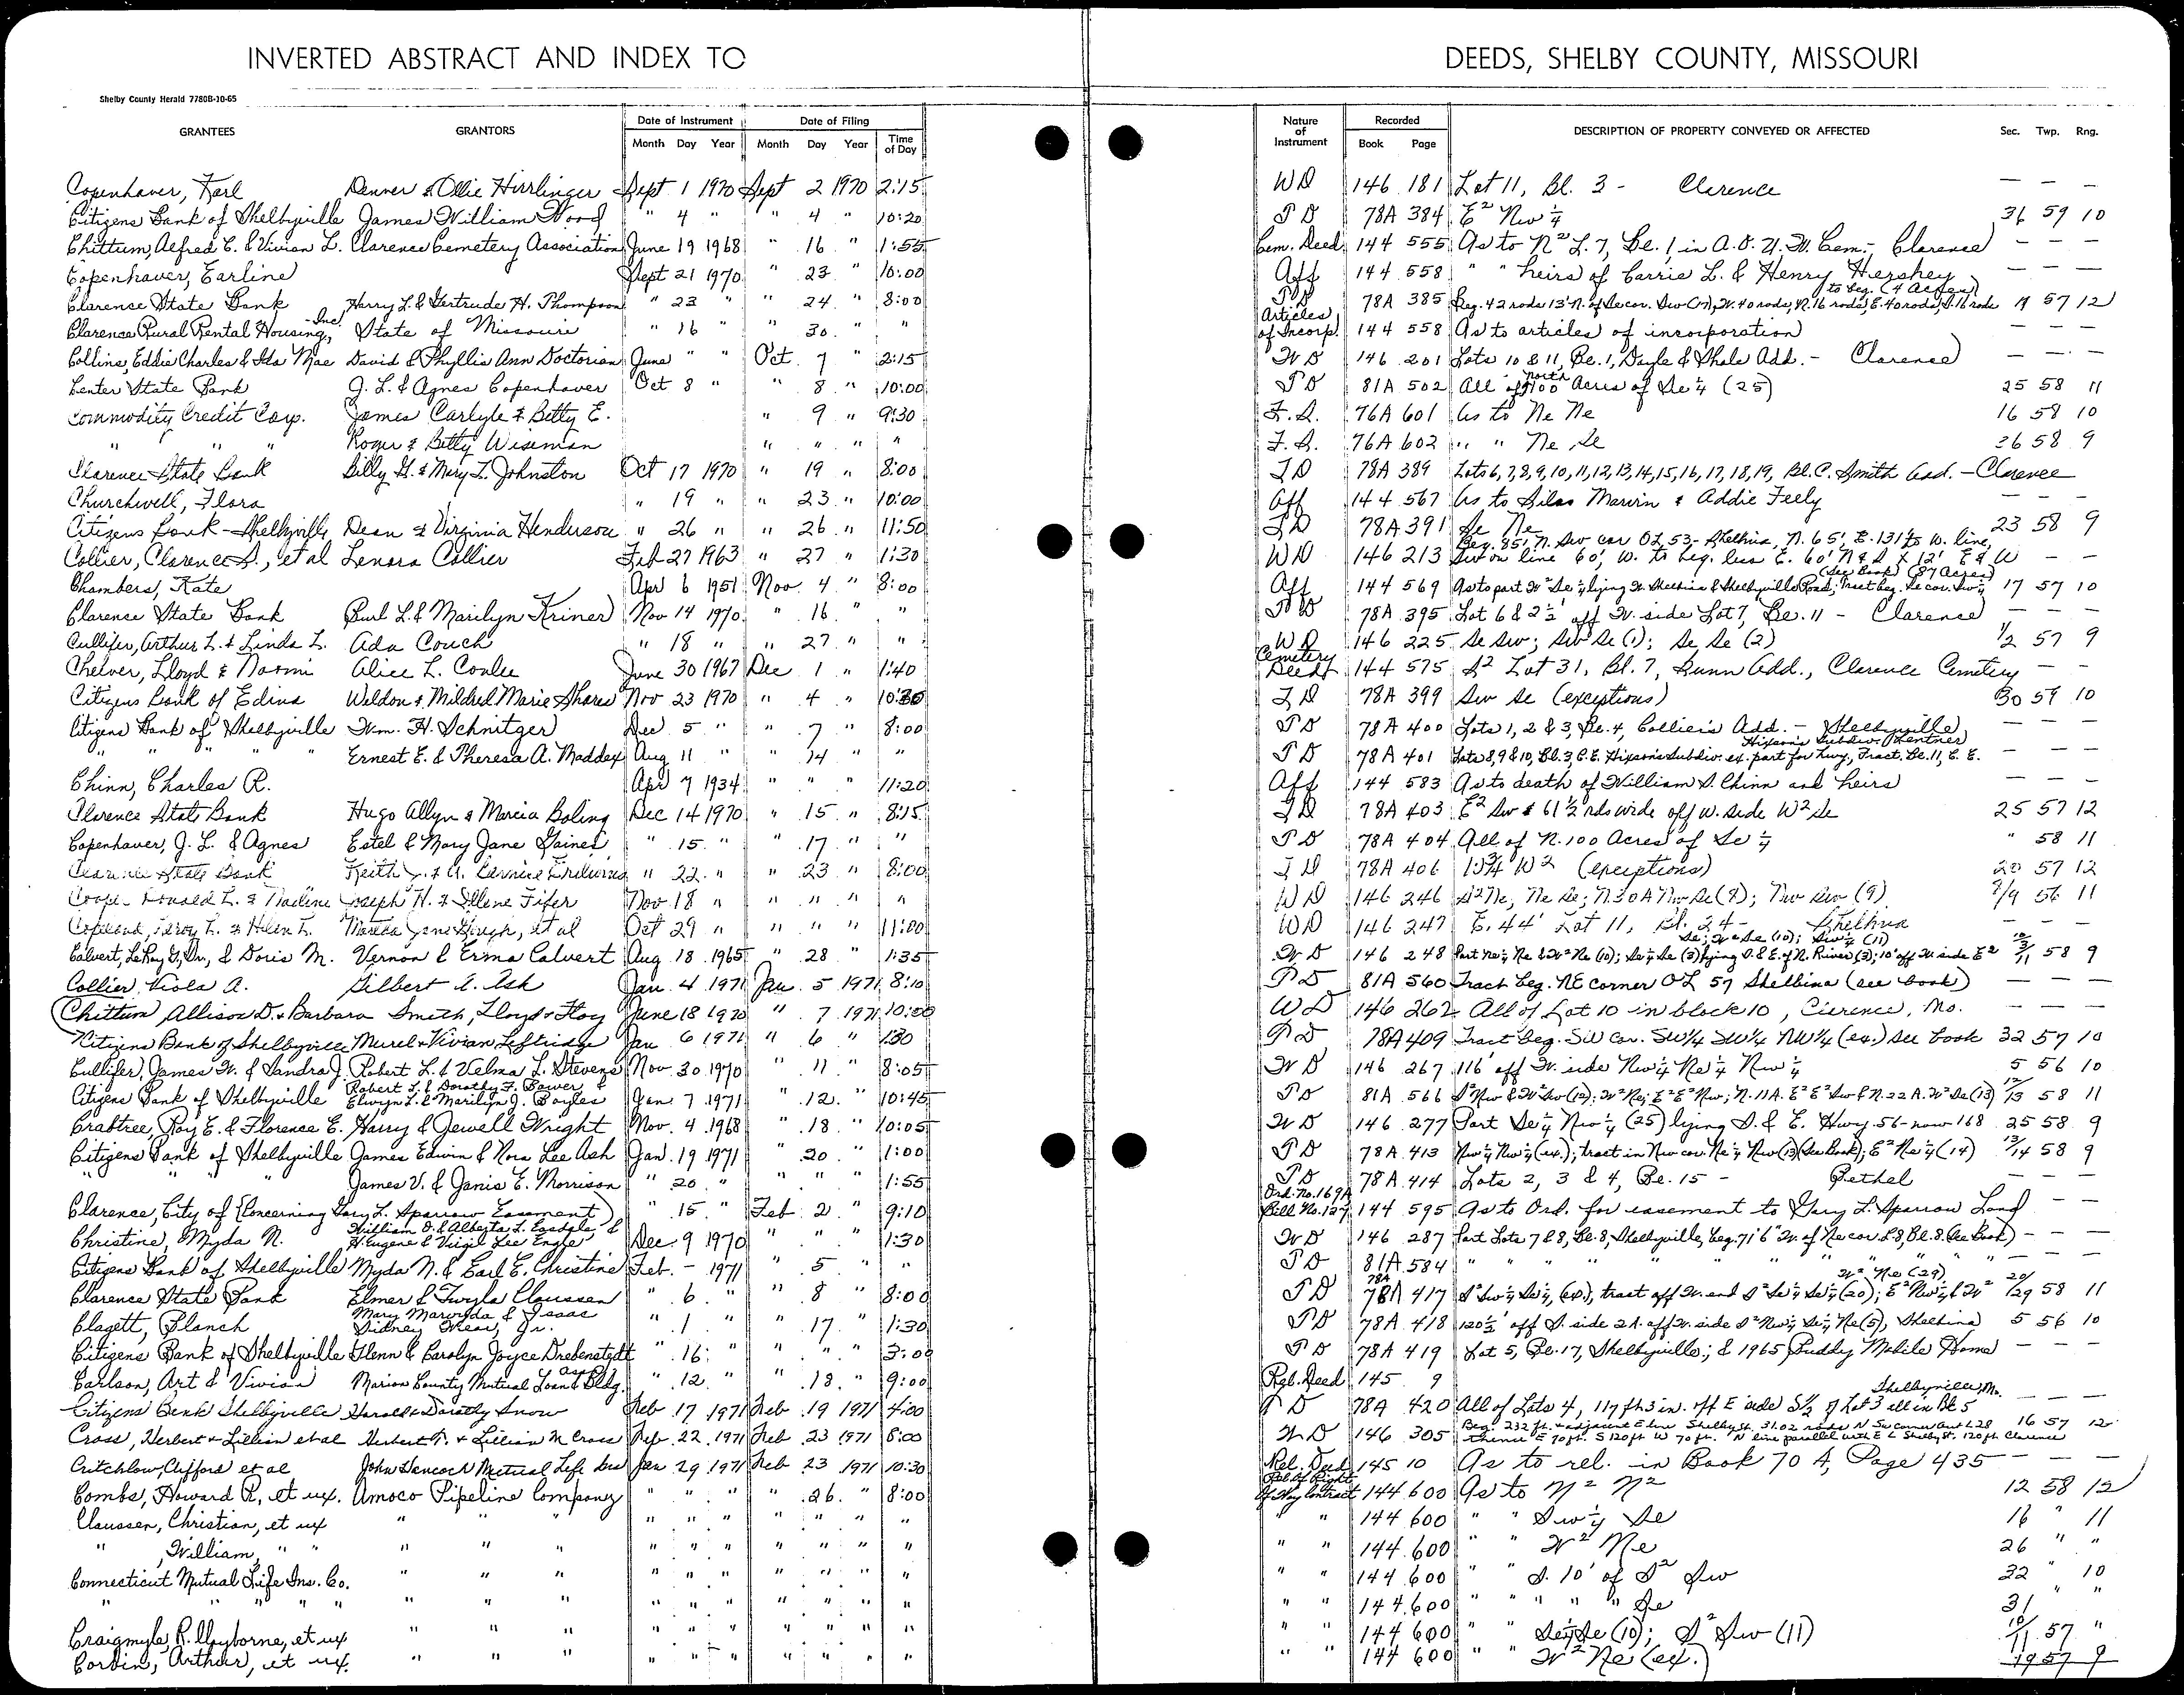 INVERTED ABSTRACT AND INDEX TO DEEDS, SHELBY COUNTY, MISSOURI
Shelby County Herald 7780B-10-65
GRANTEES GRANTORS Date of Instrument Month Day Year Date of Filing Month Day Year Time of Day Nature of Instrument Recorded Book Page DESCRIPTION OF PROPERTY CONVEYED OR AFFECTED Sec. Twp. Rng.
Copenhaver, Karl Denver & Ollie Hirrlinger Sept 1 1970 Sept 2 1970 2:15 WD 146 181 Lot 11, Bl. 3 - Clarence — — —
Citizens Bank of Shelbyville James William Wood " 4 " " 4 " 10:20 TD 78A 384 E² Nw ¼ 36 59 10
Chittum, Alfred E. & Vivian L. Clarence Cemetery Association June 19 1968 " 16 " 1:55 Cem. Deed 144 555 As to N² L. 7, Bl. 1, in A.O.U.W. Cem. - Clarence — — —
Copenhaver, Earline Sept 21 1970 " 23 " 10:00 Aff 144 558 " " heirs of Carrie L. & Henry Hershey — — —
Clarence State Bank Harry L. & Gertrude H. Thompson " 23 " " 24 " 8:00 TD 78A 385 Beg. 42 rods 13' N. of Se cor. Sw (19), W. 40 rods, N. 16 rods, E. 40 rods, S. 16 rods to beg. (4 Acres) 19 57 12
Clarence Rural Rental Housing, Inc. State of Missouri " 16 " " 30 " " Articles of Incorp. 144 558 As to articles of incorporation — — —
Collins, Eddie Charles & Ida Mae David & Phyllis Ann Doctorian June " " Oct. 7 " 2:15 WD 146 201 Lots 10 & 11, Bl. 1, Dayle & Shale Add. - Clarence — — —
Center State Bank J. L. & Agnes Copenhaver Oct 8 " " 8 " 10:00 TD 81A 502 All of North 100 Acres of Se ¼ (25) 25 58 11
Commodity Credit Corp. James Carlyle & Betty E. " 9 " 9:30 F.S. 76A 601 As to Ne Ne 16 58 10
" " " Roger & Betty Wiseman " " " " F.S. 76A 602 " " Ne Se 36 58 9
Clarence State Bank Billy G. & Mary L. Johnston Oct 17 1970 " 19 " 8:00 TD 78A 389 Lots 6,7,8,9,10,11,12,13,14,15,16,17,18,19, Bl. C. Smith Add. - Clarence
Churchwell, Flora " 19 " " 23 " 10:00 Aff 144 567 As to Silas Marvin & Addie Feely — — —
Citizens Bank - Shelbyville Dean & Virginia Henderson " 26 " " 26 " 11:50 TD 78A 391 Se Ne 23 58 9
Collier, Clarence S., et al Lenora Collier Feb 27 1963 " 27 " 1:30 WD 146 213 Beg. 85' N. Sw cor OL 53 - Shelbina, N. 65', E. 131' to W. line, Sw on line 60', W. to beg. less E. 60' N & S x 12' E & W — —
Chambers, Kate Apr 6 1951 Nov. 4 " 8:00 Aff 144 569 As to part W² Se ¼ lying W. Shelbina & Shelbyville Road; Tract beg. Se cor. Sw ¼ (See Book) (87 Acres) 17 57 10
Clarence State Bank Burl L. & Marilyn Kriner Nov 14 1970 " 16 " " TD 78A 395 Lot 6 & 2½' off W. side Lot 7, Bl. 11 - Clarence — — —
Cullifer, Arthur L. & Linda L. Ada Couch " 18 " " 27 " " WD 146 225 Se Sw; Sw Se (1); Se Se (2) ½ 57 9
Cheever, Lloyd & Naomi Alice L. Conlee June 30 1967 Dec 1 " 1:40 Cemetery Deed 144 575 S² Lot 31, Bl. 7, Bunn Add., Clarence Cemetery — —
Citizens Bank of Edina Weldon & Mildred Marie Shares Nov 23 1970 " 4 " TD 78A 399 Sw Se (exceptions) 30 59 10
Citizens Bank of Shelbyville Wm. H. Schnitzer Dec 5 " " 7 " 8:00 TD 78A 400 Lots 1, 2 & 3, Bl. 4, Collier's Add. - Shelbyville — — —
" " " " Ernest E. & Theresa A. Maddex Aug 11 " " 14 " TD 78A 401 Lots 8, 9 & 10, Bl. 3, C.E. Hixson's Subdiv. ex. part for hwy, Tract. Bl. 11, C. E. Hixson's Subdiv. — — —
Chinn, Charles R. Apr 7 1934 " " " 11:20 Aff 144 583 As to death of William S. Chinn and heirs — — —
Clarence State Bank Hugo Allyn & Marcia Boling Dec 14 1970 " 15 " 8:15 TD 78A 403 E² Sw & 61½ rds wide off w. side W² Se 25 57 12
Copenhaver, J. L. & Agnes Estel & Mary Jane Gaines " 15 " " 17 " " TD 78A 404 All of N. 100 Acres of Se ¼ " 58 11
Clarence State Bank Keith " 22 " " 23 " 8:00 TD 78A 406 W² (exceptions) 20 57 12
Donald L. & Nadine Joseph H. & Illene Fifer Nov 18 " " " " " WD 146 246 S² Ne, Ne Se; N. 30 A Nw Se (8); Nw Sw (9) 8/9 56 11
Copeland, Leroy L. & Helen L. Martha Jane Gough, et al Oct 29 " " " " 11:00 WD 146 247 E. 44' Lot 11, Bl. 24 - Shelbina — — —
Calvert, LeRoy G., Sr., & Doris M. Vernon & Erma Calvert Aug 18 1965 " 28 " 1:35 WD 146 248 Part Ne ¼ Ne & W² Ne (10); Se ¼ Se (3) lying S. & E. of N. River (3); 10' off W. side E² Se; W² Se (10); Sw ¼ (11) 58 9
Collier, Viola A. Gilbert A. Ash Jan. 4 1971 Jan. 5 1971 8:10 TD 81A 560 Tract beg. NE corner OL 57 Shelbina (see book) — — —
Chittum Allison D. & Barbara Smith, Lloyd & Floy June 18 1970 " 7 1971 10:00 WD 146 262 All of Lot 10 in block 10, Clarence, Mo. — — —
Citizens Bank of Shelbyville Murel & Vivian Leftridge Jan 6 1971 " 6 " 1:30 TD 78A 409 Tract beg. SW cor. SW¼ SW¼ NW¼ (ex.) see book 32 57 10
Cullifer, James W. & Sandra J. Robert L. & Velma L. Stevens Nov. 30 1970 " 11 " 8:05 WD 146 267 116' off W. side Nw ¼ Ne ¼ Nw ¼ 5 56 10
Citizens Bank of Shelbyville Robert L. & Dorothy F. Bower & Elwyn L. & Marilyn J. Boyles Jan 7 1971 " 12 " 10:45 TD 81A 566 S² Nw & W² Sw (12); W² Ne; E² E² Nw; N. 11 A. E² E² Sw & N. 22 A. W² Se (13) 12/13 58 11
Crabtree, Roy E. & Florence E. Harry & Jewell Wright Nov. 4 1968 " 18 " 10:05 WD 146 277 Part Se ¼ Nw ¼ (25) lying S. & E. Hwy. 56 - now 168 25 58 9
Citizens Bank of Shelbyville James Edwin & Nora Lee Ash Jan. 19 1971 " 20 " 1:00 TD 78A 413 Nw ¼ Nw ¼ (ex.); tract in Nw cor. Ne ¼ Nw (13) (See Book); E² Ne ¼ (14) 13/14 58 9
" " " " James V. & Janis E. Morrison " 20 " " " " 1:55 TD 78A 414 Lots 2, 3 & 4, Bl. 15 - Bethel — — —
Clarence, City of (Concerning Gary L. Sparrow Easement) " 15 " Feb 2 " 9:10 Ord. No. 169A Bill No. 127 144 595 As to Ord. for easement to Gary L. Sparrow Land — —
Christine, Myda N. William O. & Alberta L. & H. Eugene & Virgil Lee Engle Dec. 9 1970 " " " 1:30 WD 146 287 Part Lots 7 & 8, Bl. 8, Shelbyville, beg. 71'6" W. of Ne cor L8, Bl. 8 (See Book) — — —
Citizens Bank of Shelbyville Myda N. & Earl E. Christine Feb. - 1971 " 5 " " TD 81A 584 " " " " " " " — — —
Clarence State Bank Elmer & Twyla Claussen " 6 " " 8 " 8:00 TD 78A 417 S² Sw ¼ Se ¼, (ex.), tract off W. end S² Se ¼ Se ¼ (20); E² Nw ¼ & W² W² Ne (29) 20/29 58 11
Clagett, Blanch Mary Marwyda & Isaac Sidney Wear, Jr. " 1 " " 17 " 1:30 TD 78A 418 120½' off S. side 2 A. off W. side S² Nw ¼ Se ¼ Ne (5), Shelbina 5 56 10
Citizens Bank of Shelbyville Glenn & Carolyn Joyce Drebenstedt " 16 " " " " 3:00 TD 78A 419 Lot 5, Bl. 17, Shelbyville; & 1965 Buddy Mobile Home — — —
Carlson, Art & Vivian Marion County Mutual Loan & Bldg. Ass. " 12 " " 18 " 9:00 Rel. Deed 145 9
Citizens Bank Shelbyville Harold & Dorothy Snow Feb 17 1971 Feb 19 1971 4:00 TD 78A 420 All of Lots 4, 117 ft 3 in. off E side S½ of Lot 3 all in Bk 5 Shelbyville, Mo. — — —
Cross, Herbert & Lillian et al Herbert T. & Lillian M Cross Feb. 22 1971 Feb 23 1971 8:00 WD 146 305 Beg. 232 ft. & adjacent E line Shelby St. 31.02 rods N Sw corner Out L 28 thence E 70 ft. S 120 ft W 70 ft. N line parallel with E L Shelby St. 120 ft. Clarence 16 57 12
Critchlow, Clifford et al John Hancock Mutual Life Ins Jan 29 1971 Feb 23 1971 10:30 Rel. Deed 145 10 As to rel. in Book 70 A, Page 435 — — —
Combs, Howard R. et ux. Amoco Pipeline Company " " " " 26 " 8:00 Rel. of Right of Way Contract 144 600 As to N² N² 12 58 12
Claussen, Christian, et ux " " " " " " " " " " " " 144 600 " " Sw ¼ Se 16 " 11
" , William, " " " " " " " " " " " " " " 144 600 " " W² Ne 26 " "
Connecticut Mutual Life Ins. Co. " " " " " " " " " " " " 144 600 " " S. 10' of S² Sw 32 " 10
" " " " " " " " " " " " " " " " " " 144 600 " " " " " Se 31 " "
Craigmyle, R. Clayborne, et ux " " " " " " " " " " " " 144 600 " " Se ¼ Se (10); S² Sw (11) 10/11 57 "
Corbin, Arthur, et ux. " " " " " " " " " " " " 144 600 " " W² Ne (ex.) 19 57 9